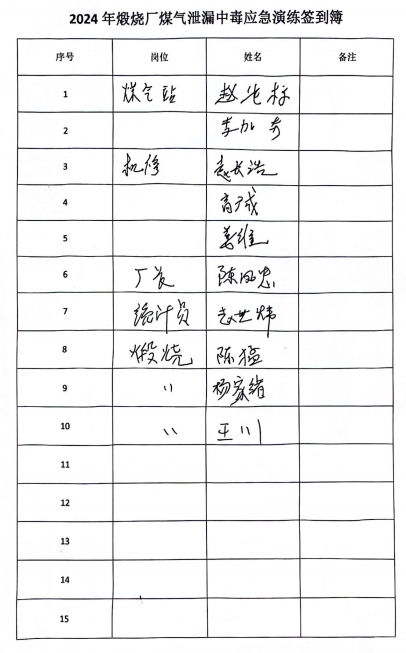 2024 年煅烧厂煤气泄漏中毒应急演练签到簿
序号 岗位 姓名 备注
1 煤气站 赵华标
2 李加奇
3 机修 赵长浩
4 高成
5 葛维
6 厂长 陈四忠
7 统计员 赵世炜
8 煅烧 陈猛
9 〃 杨家绪
10 〃 王川
11
12
13
14
15